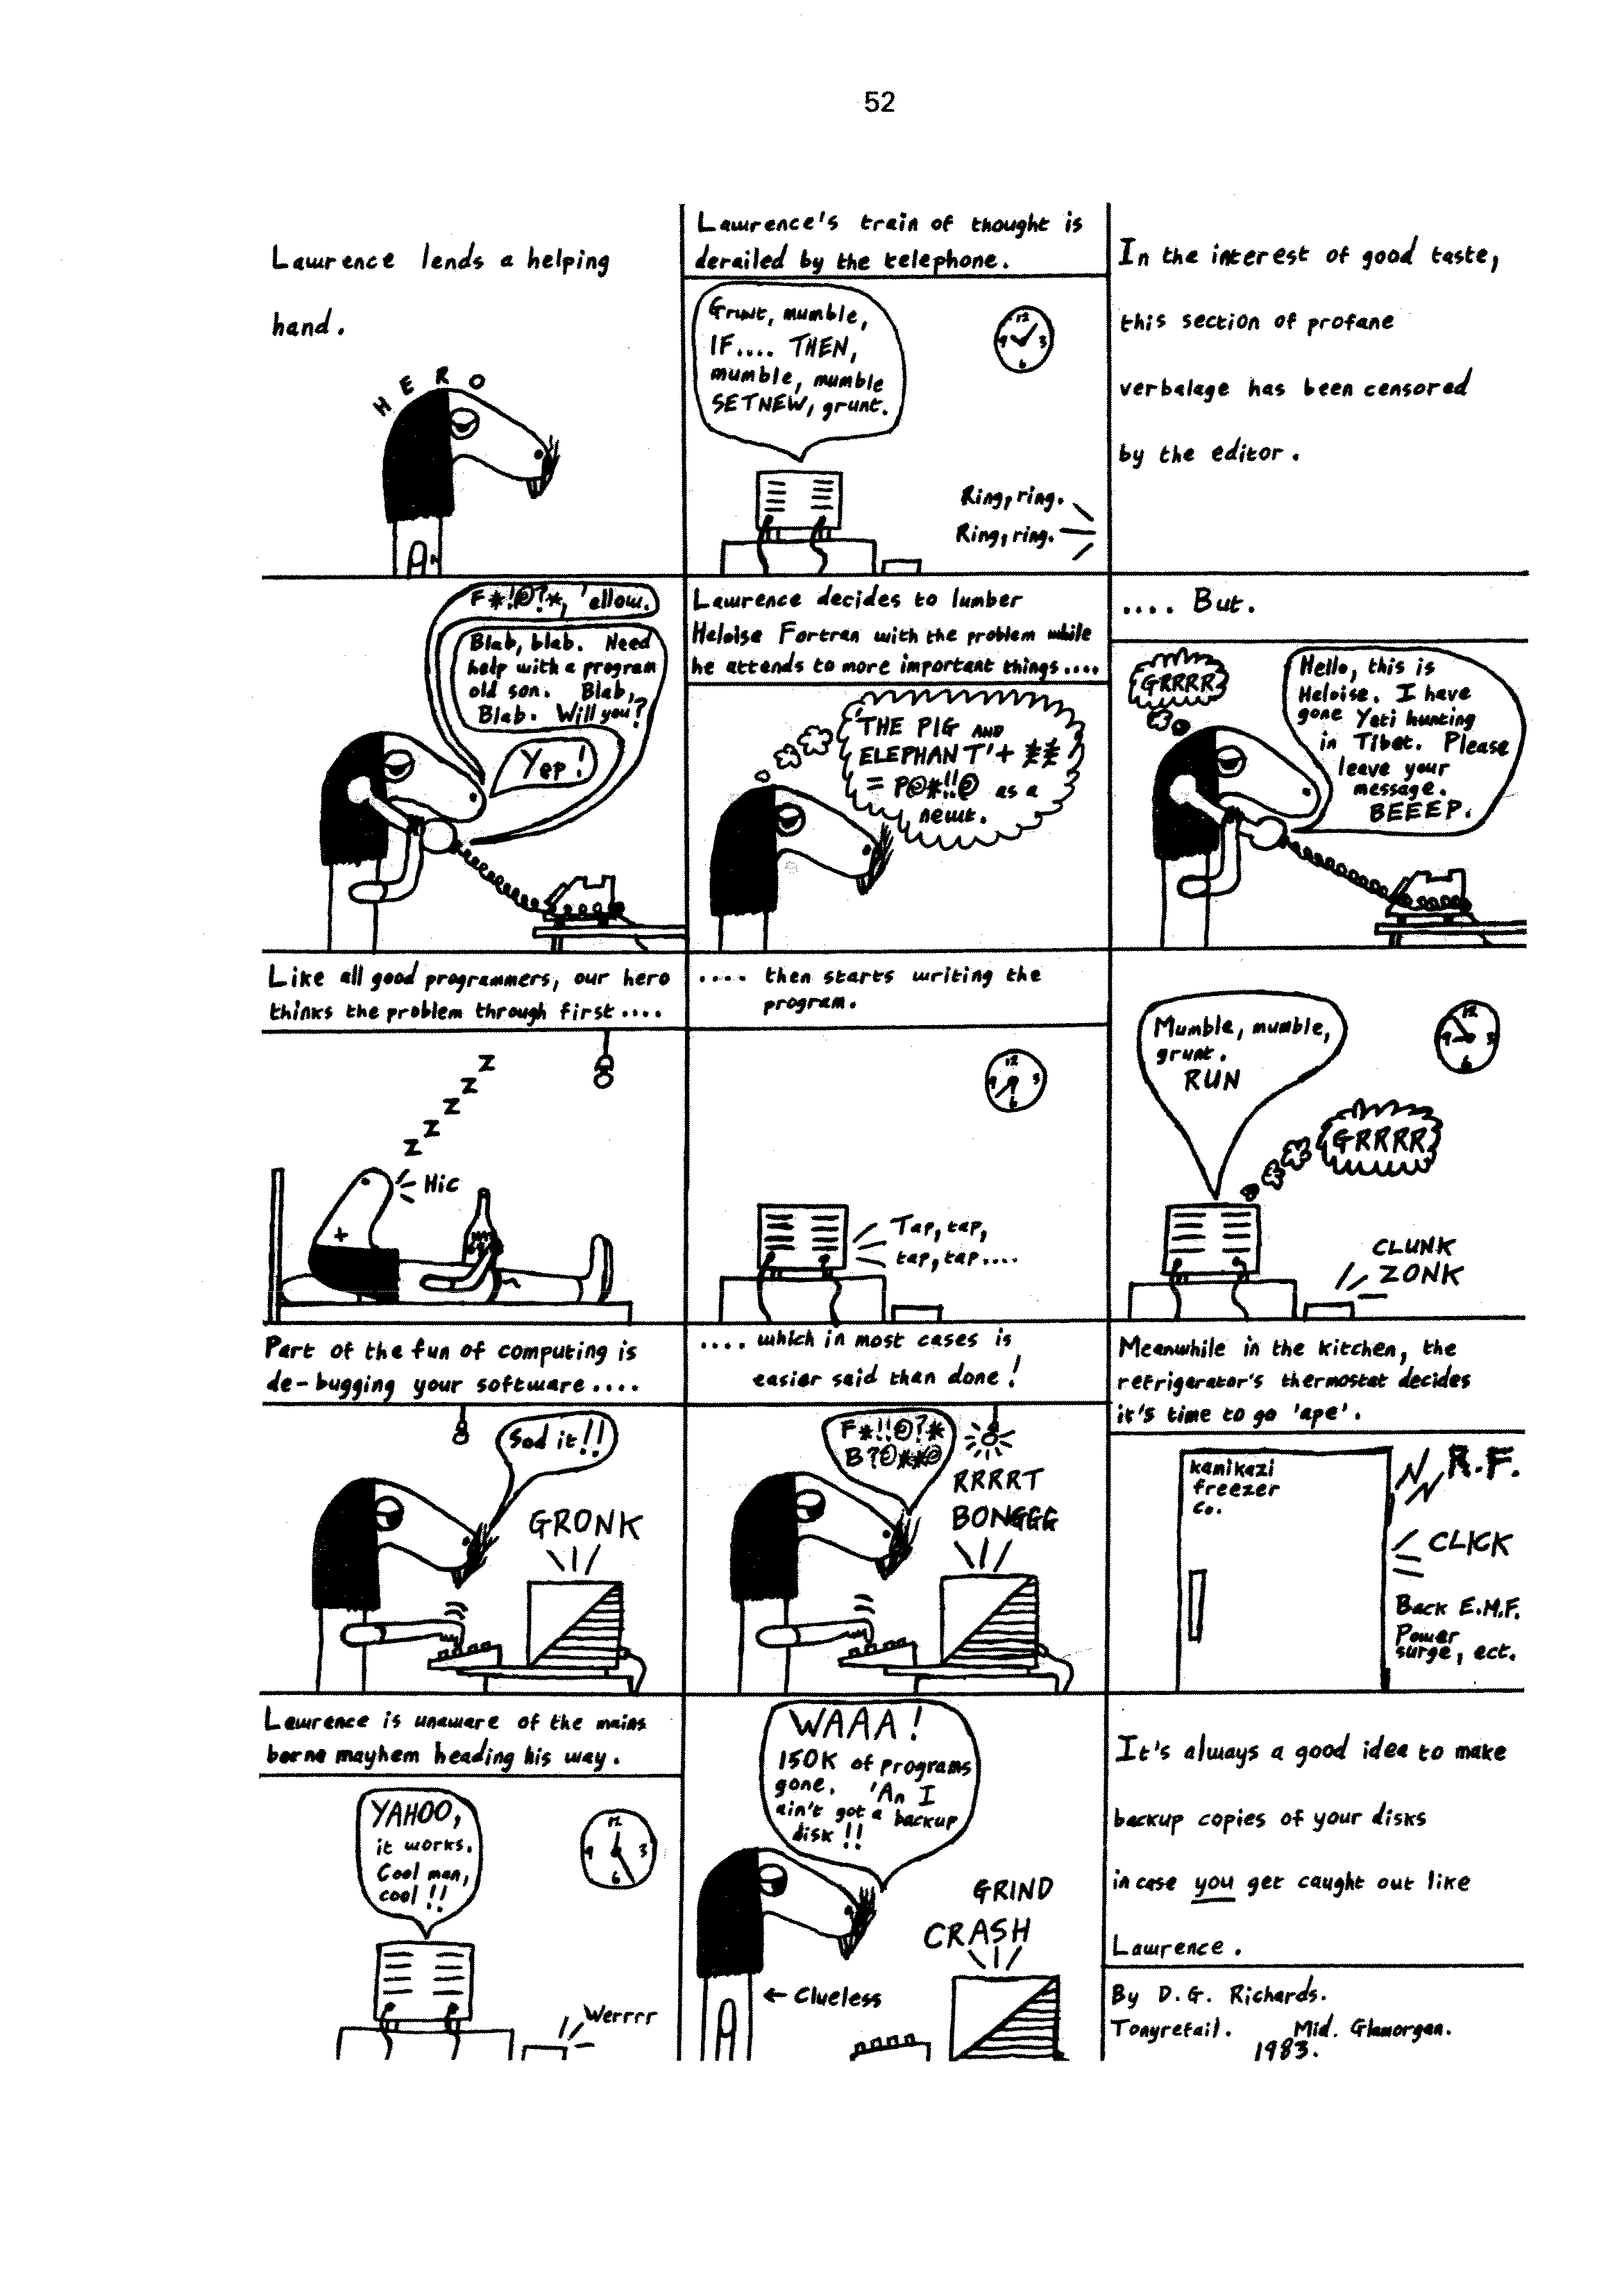 52
Lawrence lends a helping
hand.
HERO
Lawrence's train of thought is
derailed by the telephone.
Grunt, mumble,
IF.... THEN,
mumble, mumble
SETNEW, grunt.
12
9 3
6
Ring, ring.
Ring, ring.
In the interest of good taste,
this section of profane
verbalage has been censored
by the editor.
F*!@?*, 'ellow.
Blab, blab. Need
help with a program
old son. Blab,
Blab. Will you?
Yep!
Lawrence decides to lumber
Heloise Fortran with the problem while
he attends to more important things....
'THE PIG AND
ELEPHANT'+ **
= P@*!!@ as a
newt.
.... But.
GRRRR
Hello, this is
Heloise. I have
gone Yeti hunting
in Tibet. Please
leave your
message.
BEEEP.
Like all good programmers, our hero
thinks the problem through first....
Z
Z
Z
Z
Z
Hic
.... then starts writing the
program.
12
9 3
6
Tap, tap,
tap, tap....
Mumble, mumble,
grunt.
RUN
12
9 3
6
GRRRR
CLUNK
ZONK
Part of the fun of computing is
de-bugging your software....
Sod it!!
GRONK
.... which in most cases is
easier said than done!
F*!!@?*
B?@**@
RRRRT
BONGGG
Meanwhile in the kitchen, the
refrigerator's thermostat decides
it's time to go 'ape'.
kamikazi
freezer
co.
R.F.
CLICK
Back E.M.F.
Power
surge, ect.
Lawrence is unaware of the mains
borne mayhem heading his way.
YAHOO,
it works.
Cool man,
cool !!
12
9 3
6
Werrrr
WAAA!
150K of programs
gone. 'An I
ain't got a backup
disk !!
GRIND
CRASH
← Clueless
It's always a good idea to make
backup copies of your disks
in case you get caught out like
Lawrence.
By D.G. Richards.
Tonyrefail. Mid. Glamorgan.
1983.